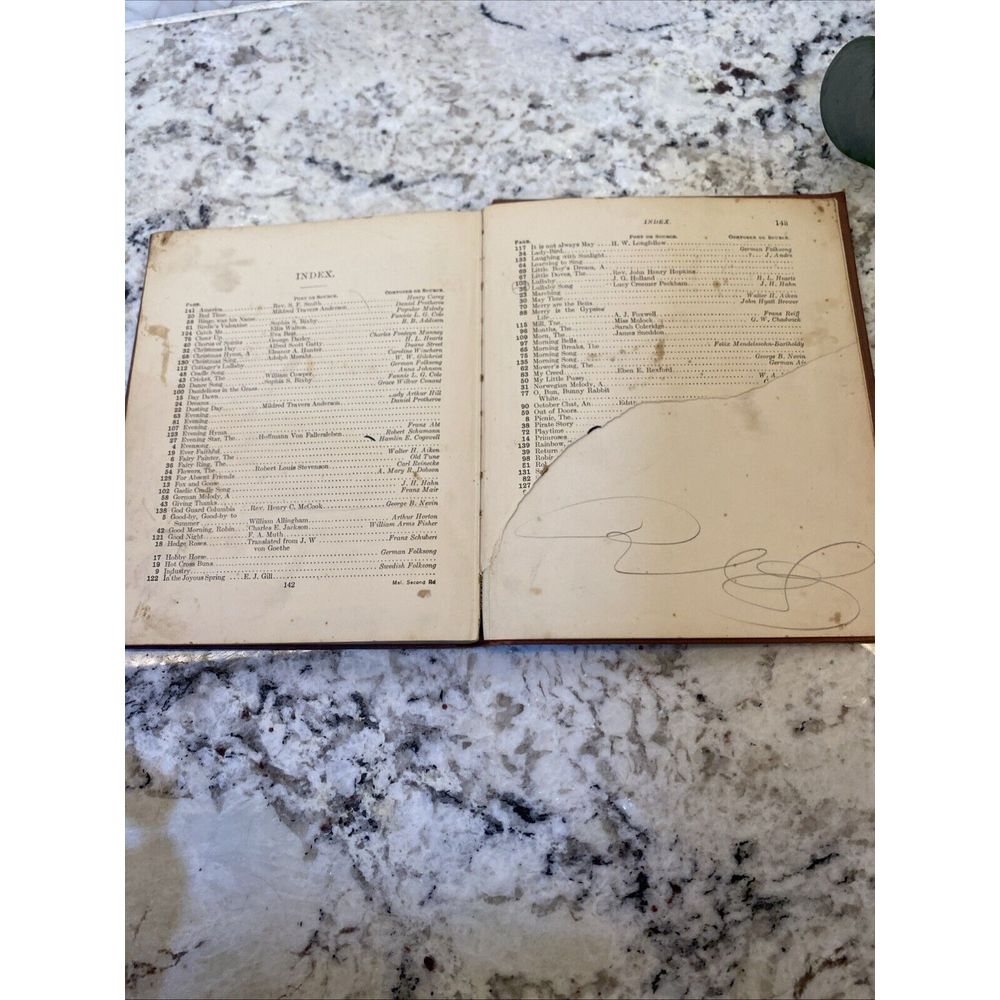 INDEX.
PAGE. POET OR SOURCE. COMPOSER OR SOURCE.
141 America Rev. S. F. Smith Henry Carey
20 Bed Time Mildred Travers Anderson Daniel Protheroe
58 Bingo was his Name Popular Melody
61 Birdie's Valentine Sophia S. Bixby Fannie L. G. Cole
124 Catch Me Ellis Walton H. B. Addison
76 Cheer Up Eva Best
40 Chorus of Spirits George Darley Charles Fonteyn Manney
32 Christmas Day Alfred Scott Gatty H. L. Hearts
68 Christmas Hymn, A Eleanor A. Hunter Duane Street
130 Christmas Song Adolph Morahl Caroline Winchern
112 Cottager's Lullaby W. W. Gilchrist
48 Cradle Song German Folksong
43 Cricket, The William Cowper Anna Johnson
80 Dance Song Sophia S. Bixby Fannie L. G. Cole
100 Dandelions in the Grass Grace Wilbur Conant
15 Day Dawn
24 Dreams Arthur Hill
22 Dusting Day Mildred Travers Anderson Daniel Protheroe
63 Evening
81 Evening
107 Evening Franz Abt
123 Evening Hymn Robert Schumann
27 Evening Star, The Hoffmann Von Fallersleben Hamlin E. Cogswell
4 Evensong
19 Ever Faithful Walter H. Aiken
6 Fairy Painter, The Old Tune
36 Fairy Ring, The Carl Reinecke
54 Flowers, The Robert Louis Stevenson A. Mary R. Dobson
128 For Absent Friends
13 Fox and Goose J. H. Hahn
102 Gaelic Cradle Song Franz Mair
58 German Melody, A
43 Giving Thanks
138 God Guard Columbia Rev. Henry C. McCook George B. Nevin
5 Good-by, Good-by to
Summer William Allingham Arthur Horton
42 Good Morning, Robin Charles E. Jackson William Arms Fisher
121 Good Night F. A. Muth
18 Hedge Roses Translated from J. W. Franz Schubert
von Goethe
17 Hobby Horse German Folksong
19 Hot Cross Buns
9 Industry Swedish Folksong
122 In the Joyous Spring E. J. Gill
142 Mel. Second Rd
INDEX. 143
PAGE. POET OR SOURCE. COMPOSER OR SOURCE.
117 It is not always May H. W. Longfellow
34 Lady-Bird German Folksong
133 Laughing with Sunlight J. André
64 Learning to Sing
69 Little Boy's Dream, A
67 Little Doves, The Rev. John Henry Hopkins
102 Lullaby J. G. Holland H. L. Hearts
35 Lullaby Song Lucy Creemer Peckham J. H. Hahn
23 Marching
30 May Time Walter H. Aiken
70 Merry are the Bells John Hyatt Brewer
88 Merry is the Gypsies'
Life A. J. Foxwell Franz Reiff
115 Mill, The Miss Mulock G. W. Chadwick
96 Months, The Sarah Coleridge
109 Morn, The James Sneddon
97 Morning Bells
65 Morning Breaks, The Felix Mendelssohn-Bartholdy
75 Morning Song
135 Morning Song George B. Nevin
62 Mower's Song, The German Air
83 My Creed Eben E. Rexford
50 My Little Pussy W. A.
31 Norwegian Melody, A
77 O, Bun, Bunny Rabbit
White
90 October Chat, An
59 Out of Doors
8 Picnic, The
38 Pirate Story
72 Playtime
14 Primroses
19 Rainbow,
39 Return
98 Robin
51
131
82
127